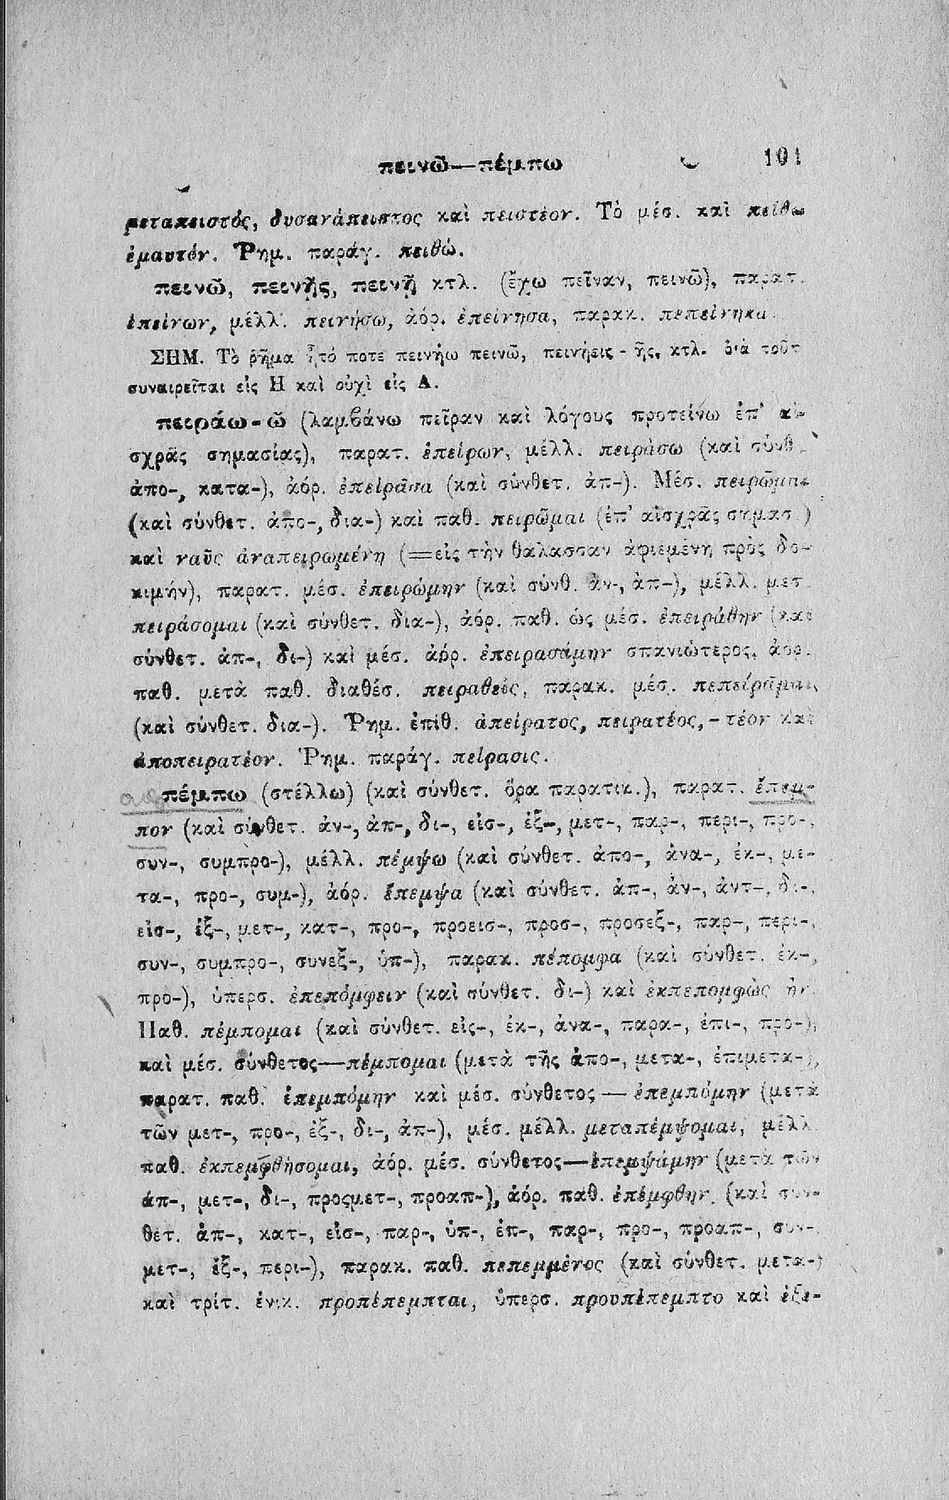 πεινῶ—πέμπω 101
μεταπειστός, δυσανάπειστος καὶ πειστέον. Τὸ μέσ. καὶ πείθω
ἐμαυτόν. Ῥημ. παράγ. πειθώ.
πεινῶ, πεινῇς, πεινῇ κτλ. (ἔχω πεῖναν, πεινῶ), παρατ.
ἐπείνων, μέλλ. πεινήσω, ἀόρ. ἐπείνησα, παρακ. πεπείνηκα.
ΣΗΜ. Τὸ ῥῆμα ἦτό ποτε πεινήω πεινῶ, πεινήεις - ῇς, κτλ. δ·ὰ τοῦτ
συναιρεῖται εἰς Η καὶ οὐχὶ εἰς Α.
πειράω-ῶ (λαμβάνω πεῖραν καὶ λόγους προτείνω ἐπ' αἰ-
σχρᾶς σημασίας), παρατ. ἐπείρων, μέλλ. πειράσω (καὶ σύνθ.
ἀπο-, κατα-), ἀόρ. ἐπείρασα (καὶ σύνθετ. ἀπ-). Μέσ. πειρῶμαι
(καὶ σύνθετ. ἀπο-, δια-) καὶ παθ. πειρῶμαι (ἐπ' αἰσχρᾶς σημασ.)
καὶ ναῦς ἀναπειρωμένη (=εἰς τὴν θαλασσαν ἀφιεμένη πρὸς δο-
κιμήν), παρατ. μέσ. ἐπειρώμην (καὶ σύνθ. ἀν-, ἀπ-), μέλλ. μεσ.
πειράσομαι (καὶ σύνθετ. δια-), ἀόρ. παθ. ὡς μέσ. ἐπειράθην (καὶ
σύνθετ. ἀπ-, δι-) καὶ μέσ. ἀόρ. ἐπειρασάμην σπανιώτερος, ἀόρ.
παθ. μετὰ παθ. διαθέσ. πειραθείς, παρακ. μέσ. πεπείραμαι,
(καὶ σύνθετ. δια-). Ῥημ. ἐπίθ. ἀπείρατος, πειρατέος,-τέον καὶ
ἀποπειρατέον. Ῥημ. παράγ. πείρασις.
πέμπω (στέλλω) (καὶ σύνθετ. ὅρα παρατικ.), παρατ. ἔπεμ-
πον (καὶ σύνθετ. ἀν-, ἀπ-, δι-, εἰσ-, ἐξ-, μετ-, παρ-, περι-, προ-,
συν-, συμπρο-), μέλλ. πέμψω (καὶ σύνθετ. ἀπο-, ἀνα-, ἐκ-, με-
τα-, προ-, συμ-), ἀόρ. ἔπεμψα (καὶ σύνθετ. ἀπ-, ἀν-, ἀντ-, δι-,
εἰσ-, ἐξ-, μετ-, κατ-, προ-, προεισ-, προσ-, προσεξ-, παρ-, περι-,
συν-, συμπρο-, συνεξ-, ὑπ-), παρακ. πέπομφα (καὶ σύνθετ. ἐκ-,
προ-), ὑπερσ. ἐπεπόμφειν (καὶ σύνθετ. δι-) καὶ ἐκπεπομφὼς ἦν.
Παθ. πέμπομαι (καὶ σύνθετ. εἰς-, ἐκ-, ἀνα-, παρα-, ἐπι-, προ-),
καὶ μέσ. σύνθετος—πέμπομαι (μετὰ τῆς ἀπο-, μετα-, ἐπιμετα-),
παρατ. παθ. ἐπεμπόμην καὶ μέσ. σύνθετος — ἐπεμπόμην (μετὰ
τῶν μετ-, προ-, ἐξ-, δι-, ἀπ-), μέσ. μέλλ. μεταπέμψομαι, μέλλ.
παθ. ἐκπεμφθήσομαι, ἀόρ. μέσ. σύνθετος—ἐπεμψάμην (μετὰ τῶν
ἀπ-, μετ-, δι-, προςμετ-, προαπ-), ἀόρ. παθ. ἐπέμφθην (καὶ συν-
θετ. ἀπ-, κατ-, εἰσ-, παρ-, ὑπ-, ἐπ-, παρ-, προ-, προαπ-, συν-,
μετ-, ἐξ-, περι-), παρακ. παθ. πεπεμμένος (καὶ σύνθετ. μετα-)
καὶ τρίτ. ἑνικ. προπέπεμπται, ὑπερσ. προυπέπεμπτο καὶ ἐξε-